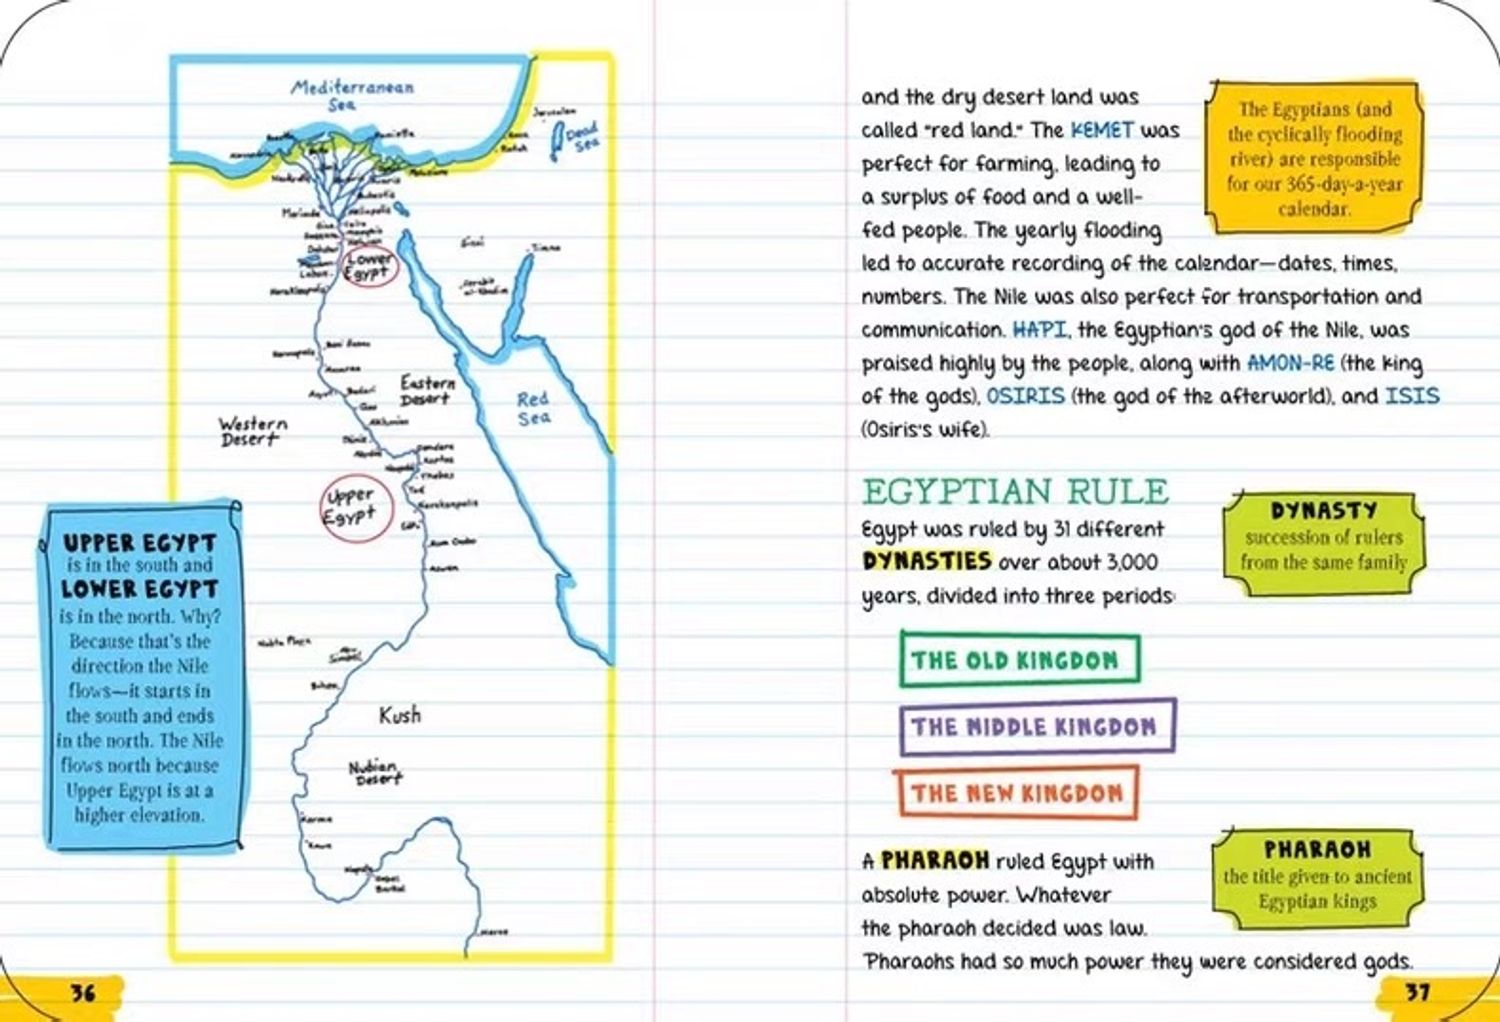 Mediterranean
Sea
Jerusalem
Dead
Sea
Gaza
Rafah
Damietta
Alexandria
Pelusium
Avaris
Bubastis
Heliopolis
Cairo
Giza
Memphis
Helwan
Lower
Egypt
Sinai
Timna
Herakleopolis
Beni Hasan
Hermopolis
Amarna
Badari
Qau
Akhmim
Eastern
Desert
Western
Desert
Red
Sea
Abydos
Dendera
Thebes
Tod
Hierakonpolis
Upper
Egypt
Edfu
Kom Ombo
Aswan
Nabta Playa
Abu
Simbel
Buhen
Kush
Nubian
Desert
Kerma
Kawa
Napata
Gebel
Barkal
Meroe
UPPER EGYPT
is in the south and
LOWER EGYPT
is in the north. Why?
Because that's the
direction the Nile
flows—it starts in
the south and ends
in the north. The Nile
flows north because
Upper Egypt is at a
higher elevation.
36
and the dry desert land was
called "red land." The KEMET was
perfect for farming, leading to
a surplus of food and a well-
fed people. The yearly flooding
led to accurate recording of the calendar—dates, times,
numbers. The Nile was also perfect for transportation and
communication. HAPI, the Egyptian's god of the Nile, was
praised highly by the people, along with AMON-RE (the king
of the gods), OSIRIS (the god of the afterworld), and ISIS
(Osiris's wife).
The Egyptians (and
the cyclically flooding
river) are responsible
for our 365-day-a-year
calendar.
EGYPTIAN RULE
Egypt was ruled by 31 different
DYNASTIES over about 3,000
years, divided into three periods:
DYNASTY
succession of rulers
from the same family
THE OLD KINGDOM
THE MIDDLE KINGDOM
THE NEW KINGDOM
A PHARAOH ruled Egypt with
absolute power. Whatever
the pharaoh decided was law.
Pharaohs had so much power they were considered gods.
PHARAOH
the title given to ancient
Egyptian kings
37